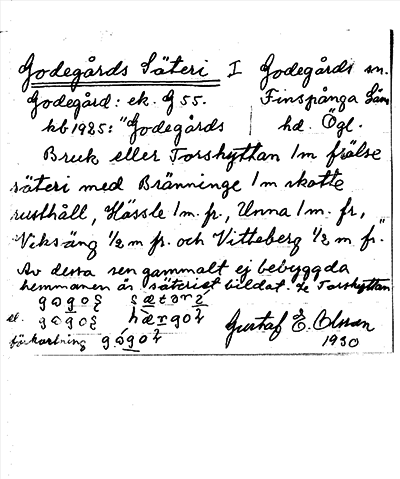 Godegårds Säteri I Godegårds sn.
Godegård: ek. G 55. Finspånga läns
kb 1925: "Godegårds hd. Ögl.
Bruk eller Torshyttan 1 m frälse
säteri med Bränninge 1 m skatte
rusthåll, Hässle 1 m. fr., Unna 1 m. fr,
Viksäng 1/2 m fr. och Vitteberg 1/2 m. fr."
Av dessa sen gammalt ej bebyggda
hemmanen är säteriet bildat. Se Torshyttan
el.
förkortning
Gustaf E. Olsson
1930